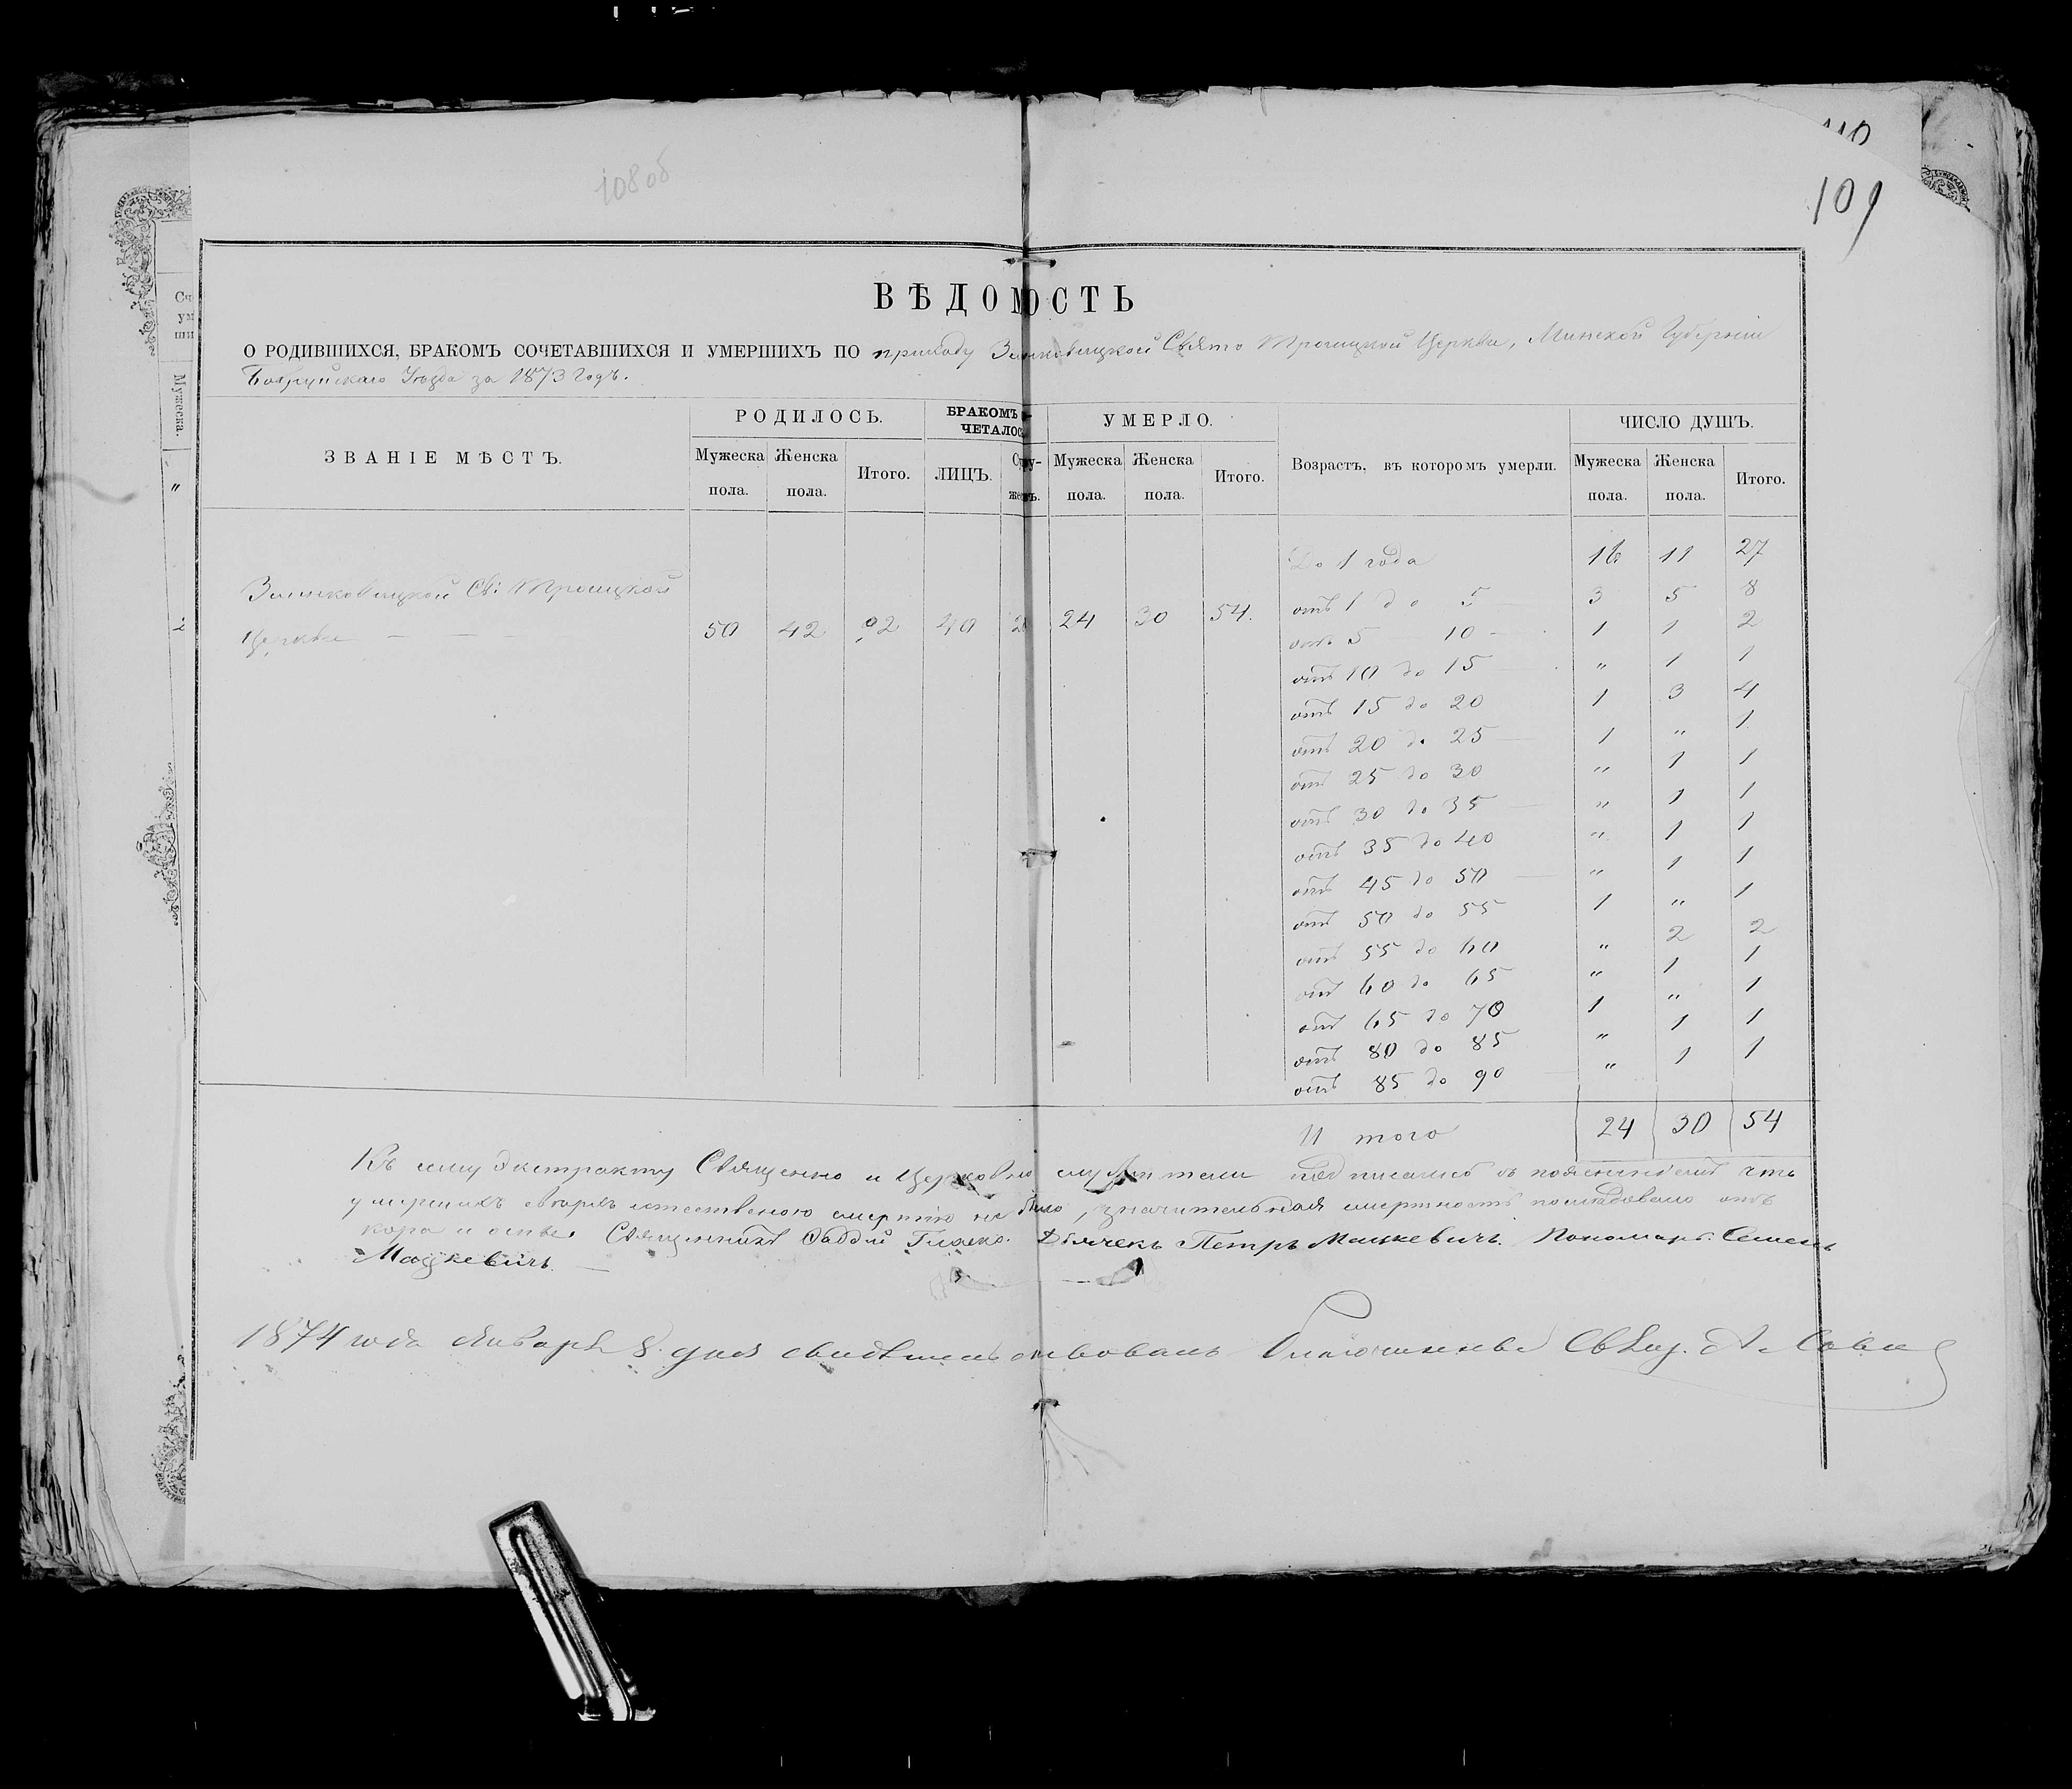 108 об
110
109
ВѢДОМОСТЬ
О РОДИВШИХСЯ, БРАКОМЪ СОЧЕТАВШИХСЯ И УМЕРШИХЪ ПО приходу Свято Троицкой Церкви, Минской Губерніи
Бобруйскаго Уѣзда за 1873 годъ.
ЗВАНІЕ МѢСТЪ.
РОДИЛОСЬ.
Мужеска пола.
Женска пола.
Итого.
БРАКОМЪ
ЧЕТАЛОС
ЛИЦЪ.
УМЕРЛО.
Мужеска пола.
Женска пола.
Итого.
Возрастъ, въ которомъ умерли.
ЧИСЛО ДУШЪ.
Мужеска пола.
Женска пола.
Итого.
Св: Троицкой
Церкви — — 50 42 92 40 24 30 54.
До 1 года 16 11 27
отъ 1 до 5 3 5 8
отъ 5 — 10 — 1 1 2
отъ 10 до 15 — " 1 1
отъ 15 до 20 1 3 4
отъ 20 до 25 — 1 " 1
отъ 25 до 30 " 1 1
отъ 30 до 35 — " 1 1
отъ 35 до 40 " 1 1
отъ 45 до 50 — " 1 1
отъ 50 до 55 1 " 1
отъ 55 до 60 " 2 2
отъ 60 до 65 " 1 1
отъ 65 до 70 1 " 1
отъ 80 до 85 " 1 1
отъ 85 до 90 " 1 1
И того 24 30 54
Къ сему Экстракту Священно и Церковно служители
умершихъ смертію не было, значительная смертность отъ
кора и оспы. Священникъ Дьячекъ Петръ Мацкевичъ. Пономарь Семенъ
Мацкевичъ. —
1874 года Января 8 дня свидѣтельствовалъ Благочинный Свящ.
Мужеска.
"